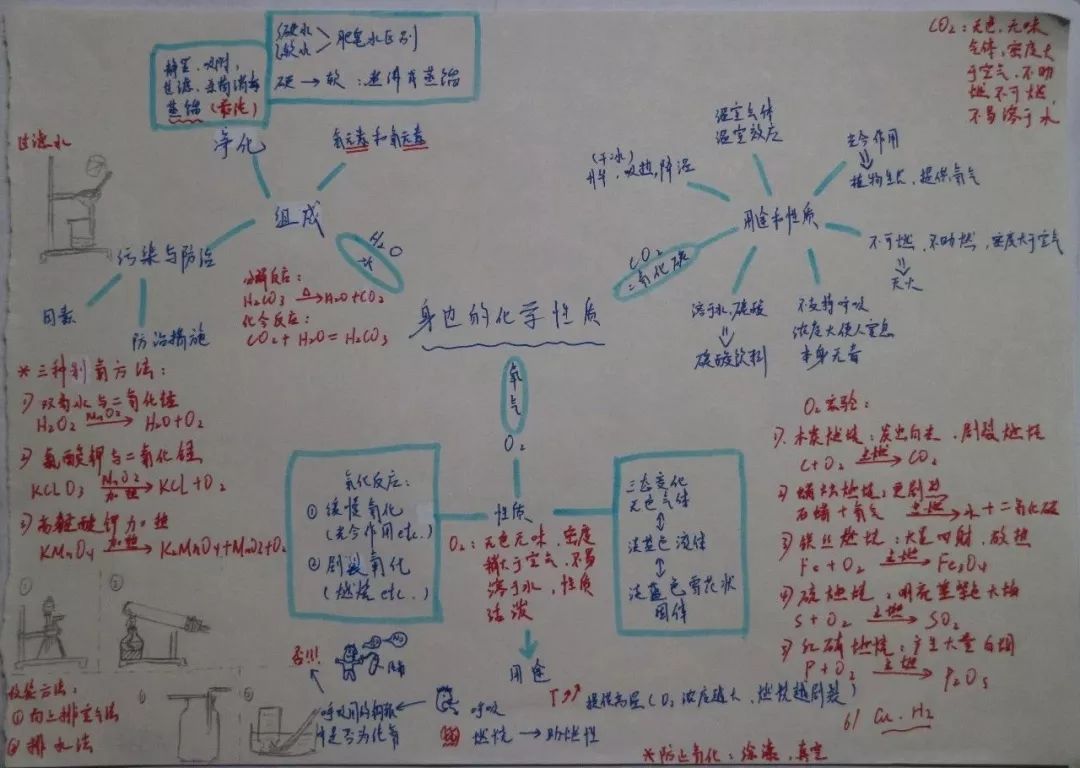 硬水
软水
肥皂水区别
硬→软：煮沸或蒸馏
静置、吸附，
过滤、杀菌消毒
蒸馏（最净）
净化
氢元素和氧元素
组成
H₂O
水
过滤水
污染与防治
因素
防治措施
分解反应：
H₂CO₃ △→ H₂O+CO₂
化合反应：
CO₂+H₂O=H₂CO₃
身边的化学性质
CO₂：无色，无味
气体，密度大
于空气，不助
燃不可燃，
不易溶于水
温室气体
温室效应
（干冰）
升华，吸热，降温
光合作用
植物生长，提供氧气
用途和性质
CO₂
二氧化碳
不可燃，不助燃，密度大于空气
灭火
溶于水，碳酸
碳酸饮料
不支持呼吸
浓度大使人窒息
本身无毒
*三种制氧方法：
1）双氧水与二氧化锰
H₂O₂ MnO₂→ H₂O+O₂
2）氯酸钾与二氧化锰
KCLO₃ MnO₂ 加热→ KCL+O₂
3）高锰酸钾加热
KMnO₄ 加热→ K₂MnO₄+MnO2+O₂
①
②
收集方法：
①向上排空气法
②排水法
氧气
O₂
氧化反应：
①缓慢氧化
（光合作用etc..）
②剧烈氧化
（燃烧etc..）
性质
O₂：无色无味，密度
稍大于空气，不易
溶于水，性质
活泼
三态变化
无色气体
淡蓝色液体
淡蓝色雪花状
固体
用途
否!!!
呼吸
燃烧→助燃性
提供高温（O₂浓度越大，燃烧越剧烈）
O₂实验：
1）木炭燃烧：发出白光，剧烈燃烧
C+O₂ 点燃→ CO₂
2）蜡烛燃烧：更剧烈
石蜡+氧气 点燃→ 水+二氧化碳
3）铁丝燃烧：火星四射，放热
Fe+O₂ 点燃→ Fe₃O₄
4）硫燃烧：明亮蓝紫色火焰
S+O₂ 点燃→ SO₂
5）红磷燃烧：产生大量白烟
P+O₂ 点燃→ P₂O₅
6）Cu、H₂
*防止氧化：涂漆，真空